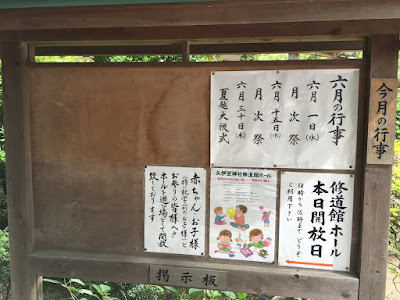 今月の行事
六月の行事
六月 一日(水)
月次祭
六月十五日(水)
月次祭
六月三十日(木)
夏越大祓式
赤ちゃん、お子様
(特に就学前のお子様)と
お参りの皆様へ!!
ホールを遊び場として開放
致しております
久伊豆神社修道館ホール
修道館ホール
本日開放日
どうぞ
ご利用下さい
掲示板